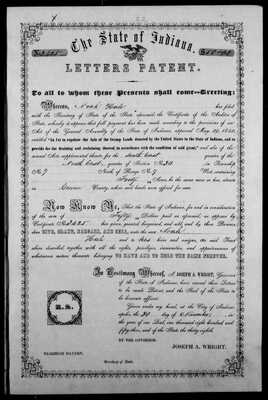 The State of Indiana.
LETTERS PATENT.
To all to whom these Presents shall come—Greeting:
Whereas, Noah has filed
with the Secretary of State of the State aforesaid the Certificate of the Auditor of
State, whereby it appears that full payment has been made according to the provisions of an
Act of the General Assembly of the State of Indiana, approved May 29, 1852,
entitled "An Act to regulate the Sale of the Swamp Lands donated by the United States to the State of Indiana, and to
provide for the draining and reclaiming thereof, in accordance with the condition of said grant;" and also of the
several Acts supplemental thereto for the South East quarter of the
North East quarter of Section No 20 in Township
No 7 North of Range No 7 West containing
Forty Acres, be the same more or less, situate
in County, where such lands were offered for sale.
Now Know Ye, That the State of Indiana, for and in consideration
of the sum of Fifty Dollars paid as aforesaid, as appears by
Certificate No 2625 has given, granted, bargained and sold, and by these Presents,
does GIVE, GRANT, BARGAIN, AND SELL, unto the said Noah
and to his heirs and assigns, the said Tract
above described, together with all the rights, privileges, immunities, and appurtenances of
whatsoever nature thereunto belonging TO HAVE AND TO HOLD THE SAME FOREVER.
In Testimony Whereof, I, JOSEPH A. WRIGHT, Governor
of the State of Indiana, have caused these Letters
to be made Patent, and the Seal of the State to
be hereunto affixed.
Given under my hand, at the City of Indian-
apolis, the 30 day of November, in
the year of our Lord, one thousand eight hundred and
fifty three, and of the State the thirty-eighth.
BY THE GOVERNOR:
JOSEPH A. WRIGHT.
NEHEMIAH HAYDEN,
Secretary of State.